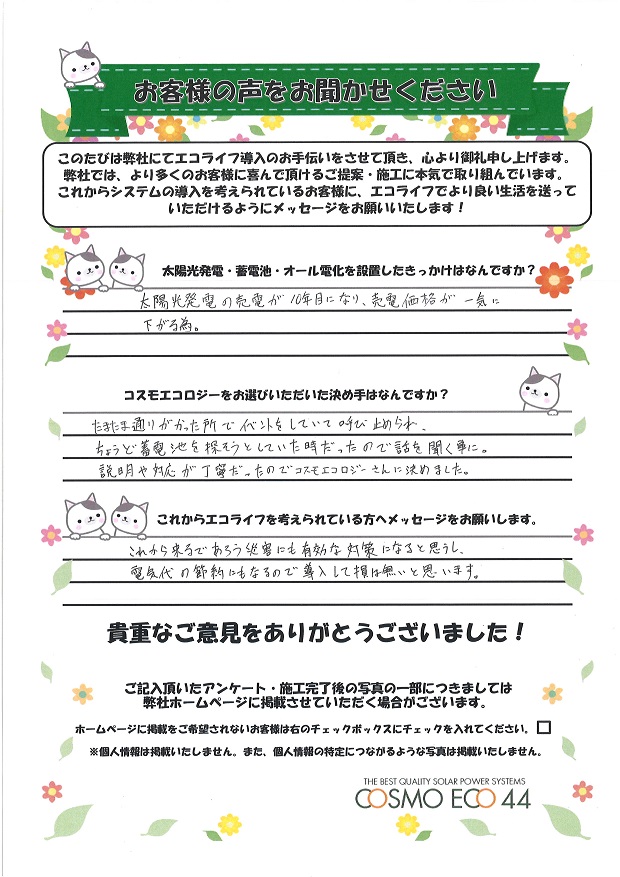 お客様の声をお聞かせください
このたびは弊社にてエコライフ導入のお手伝いをさせて頂き、心より御礼申し上げます。
弊社では、より多くのお客様に喜んで頂けるご提案・施工に本気で取り組んでいます。
これからシステムの導入を考えられているお客様に、エコライフでより良い生活を送って
いただけるようにメッセージをお願いいたします！
太陽光発電・蓄電池・オール電化を設置したきっかけはなんですか？
太陽光発電の売電が10年目になり、売電価格が一気に
下がる為。
コスモエコロジーをお選びいただいた決め手はなんですか？
たまたま通りがかった所でイベントをしていて呼び止められ、
ちょうど蓄電池を探そうとしていた時だったので話を聞く事に。
説明や対応が丁寧だったのでコスモエコロジーさんに決めました。
これからエコライフを考えられている方へメッセージをお願いします。
これから来るであろう災害にも有効な対策になると思うし、
電気代の節約にもなるので導入して損は無いと思います。
貴重なご意見をありがとうございました！
ご記入頂いたアンケート・施工完了後の写真の一部につきましては
弊社ホームページに掲載させていただく場合がございます。
ホームページに掲載をご希望されないお客様は右のチェックボックスにチェックを入れてください。
※個人情報は掲載いたしません。また、個人情報の特定につながるような写真は掲載いたしません。
THE BEST QUALITY SOLAR POWER SYSTEMS
COSMO ECO 44